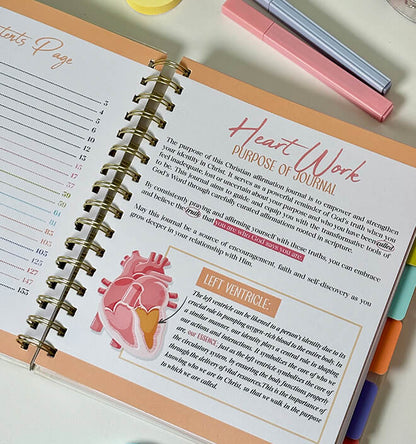 tents Page
5
5
7
17
57
59
61
91
95
105
123
127
153
Heart Work
PURPOSE OF JOURNAL
The purpose of this Christian affirmation journal is to empower and strengthen
your identity in Christ. It serves as a powerful reminder of God's truth when you
feel inadequate, lost or uncertain about your purpose and who you have been called
to be. This journal aims to guide and equip you with the transformative tools of
God's Word through carefully curated affirmations rooted in scripture.
By consistently praying and affirming yourself with these truths, you can embrace
and believe the truth that you are who God says you are.
May this journal be a source of encouragement, faith and self-discovery as you
grow deeper in your relationship with Him.
LEFT VENTRICLE:
The left ventricle can be likened to a person's identity due to its
crucial role in pumping oxygen-rich blood to the entire body. In
a similar manner, our identity plays a central role in shaping
our actions and interactions. It symbolizes the core of who we
are, our ESSENCE- just as the left ventricle symbolizes the core of
the circulatory system in ensuring the body functions properly
through the delivery of vital resources. This is the importance of
knowing who we are in Christ, so that we walk in the purpose
in which we are called.